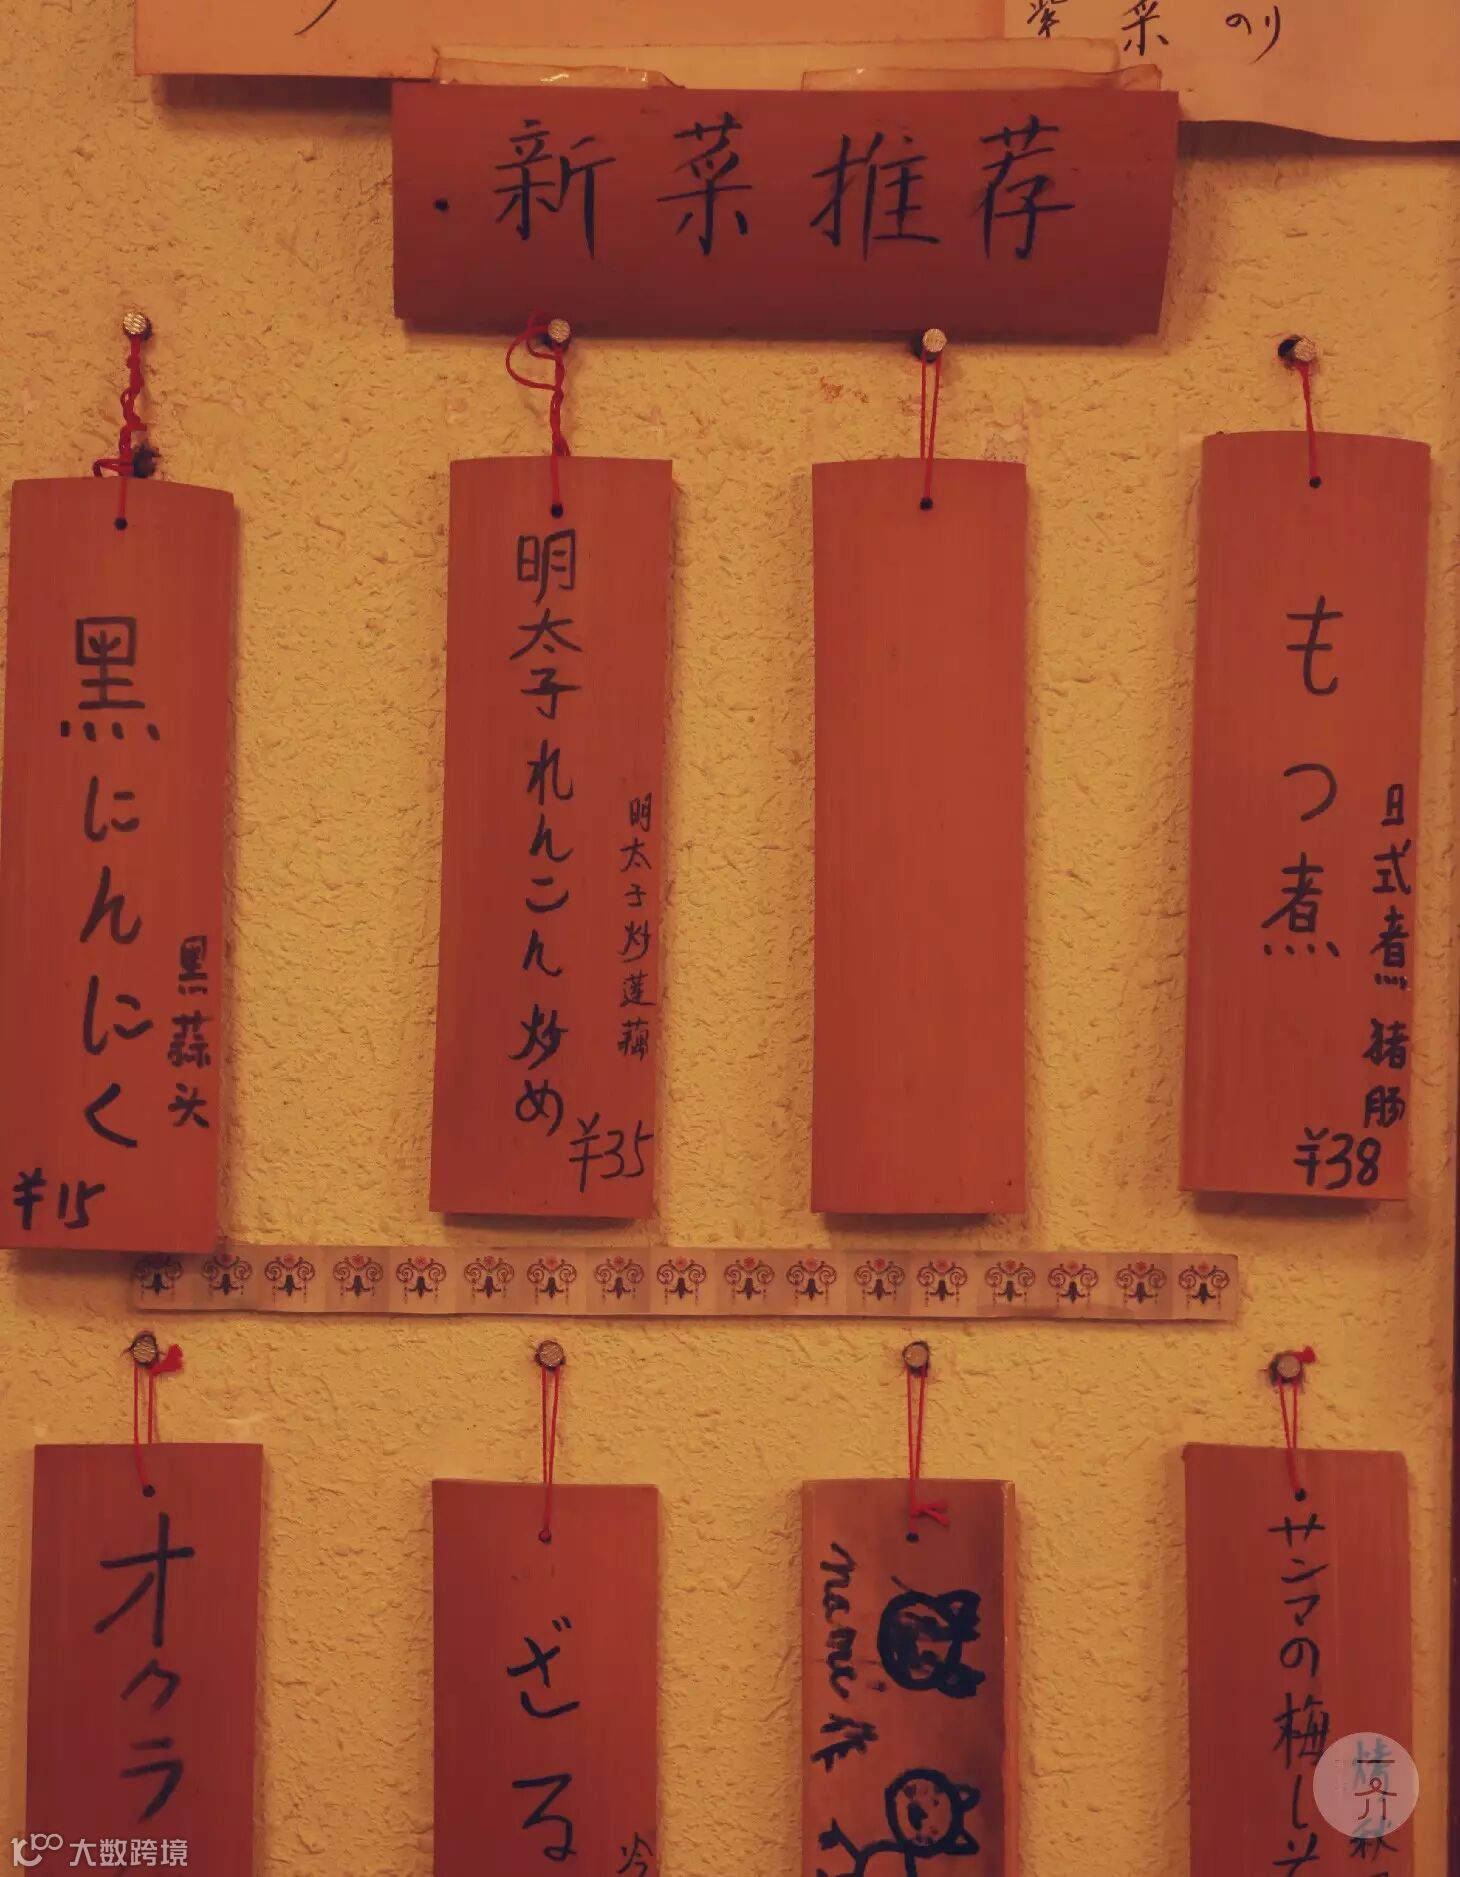 紫菜 のり
・新菜推荐
黒にんにく
黑蒜头
¥15
明太子れんこん炒め
明太子炒莲藕
¥35
もつ煮
日式煮猪肠
¥38
オクラ
ざる
冷
name 作
サンマの梅しそ
大数跨境